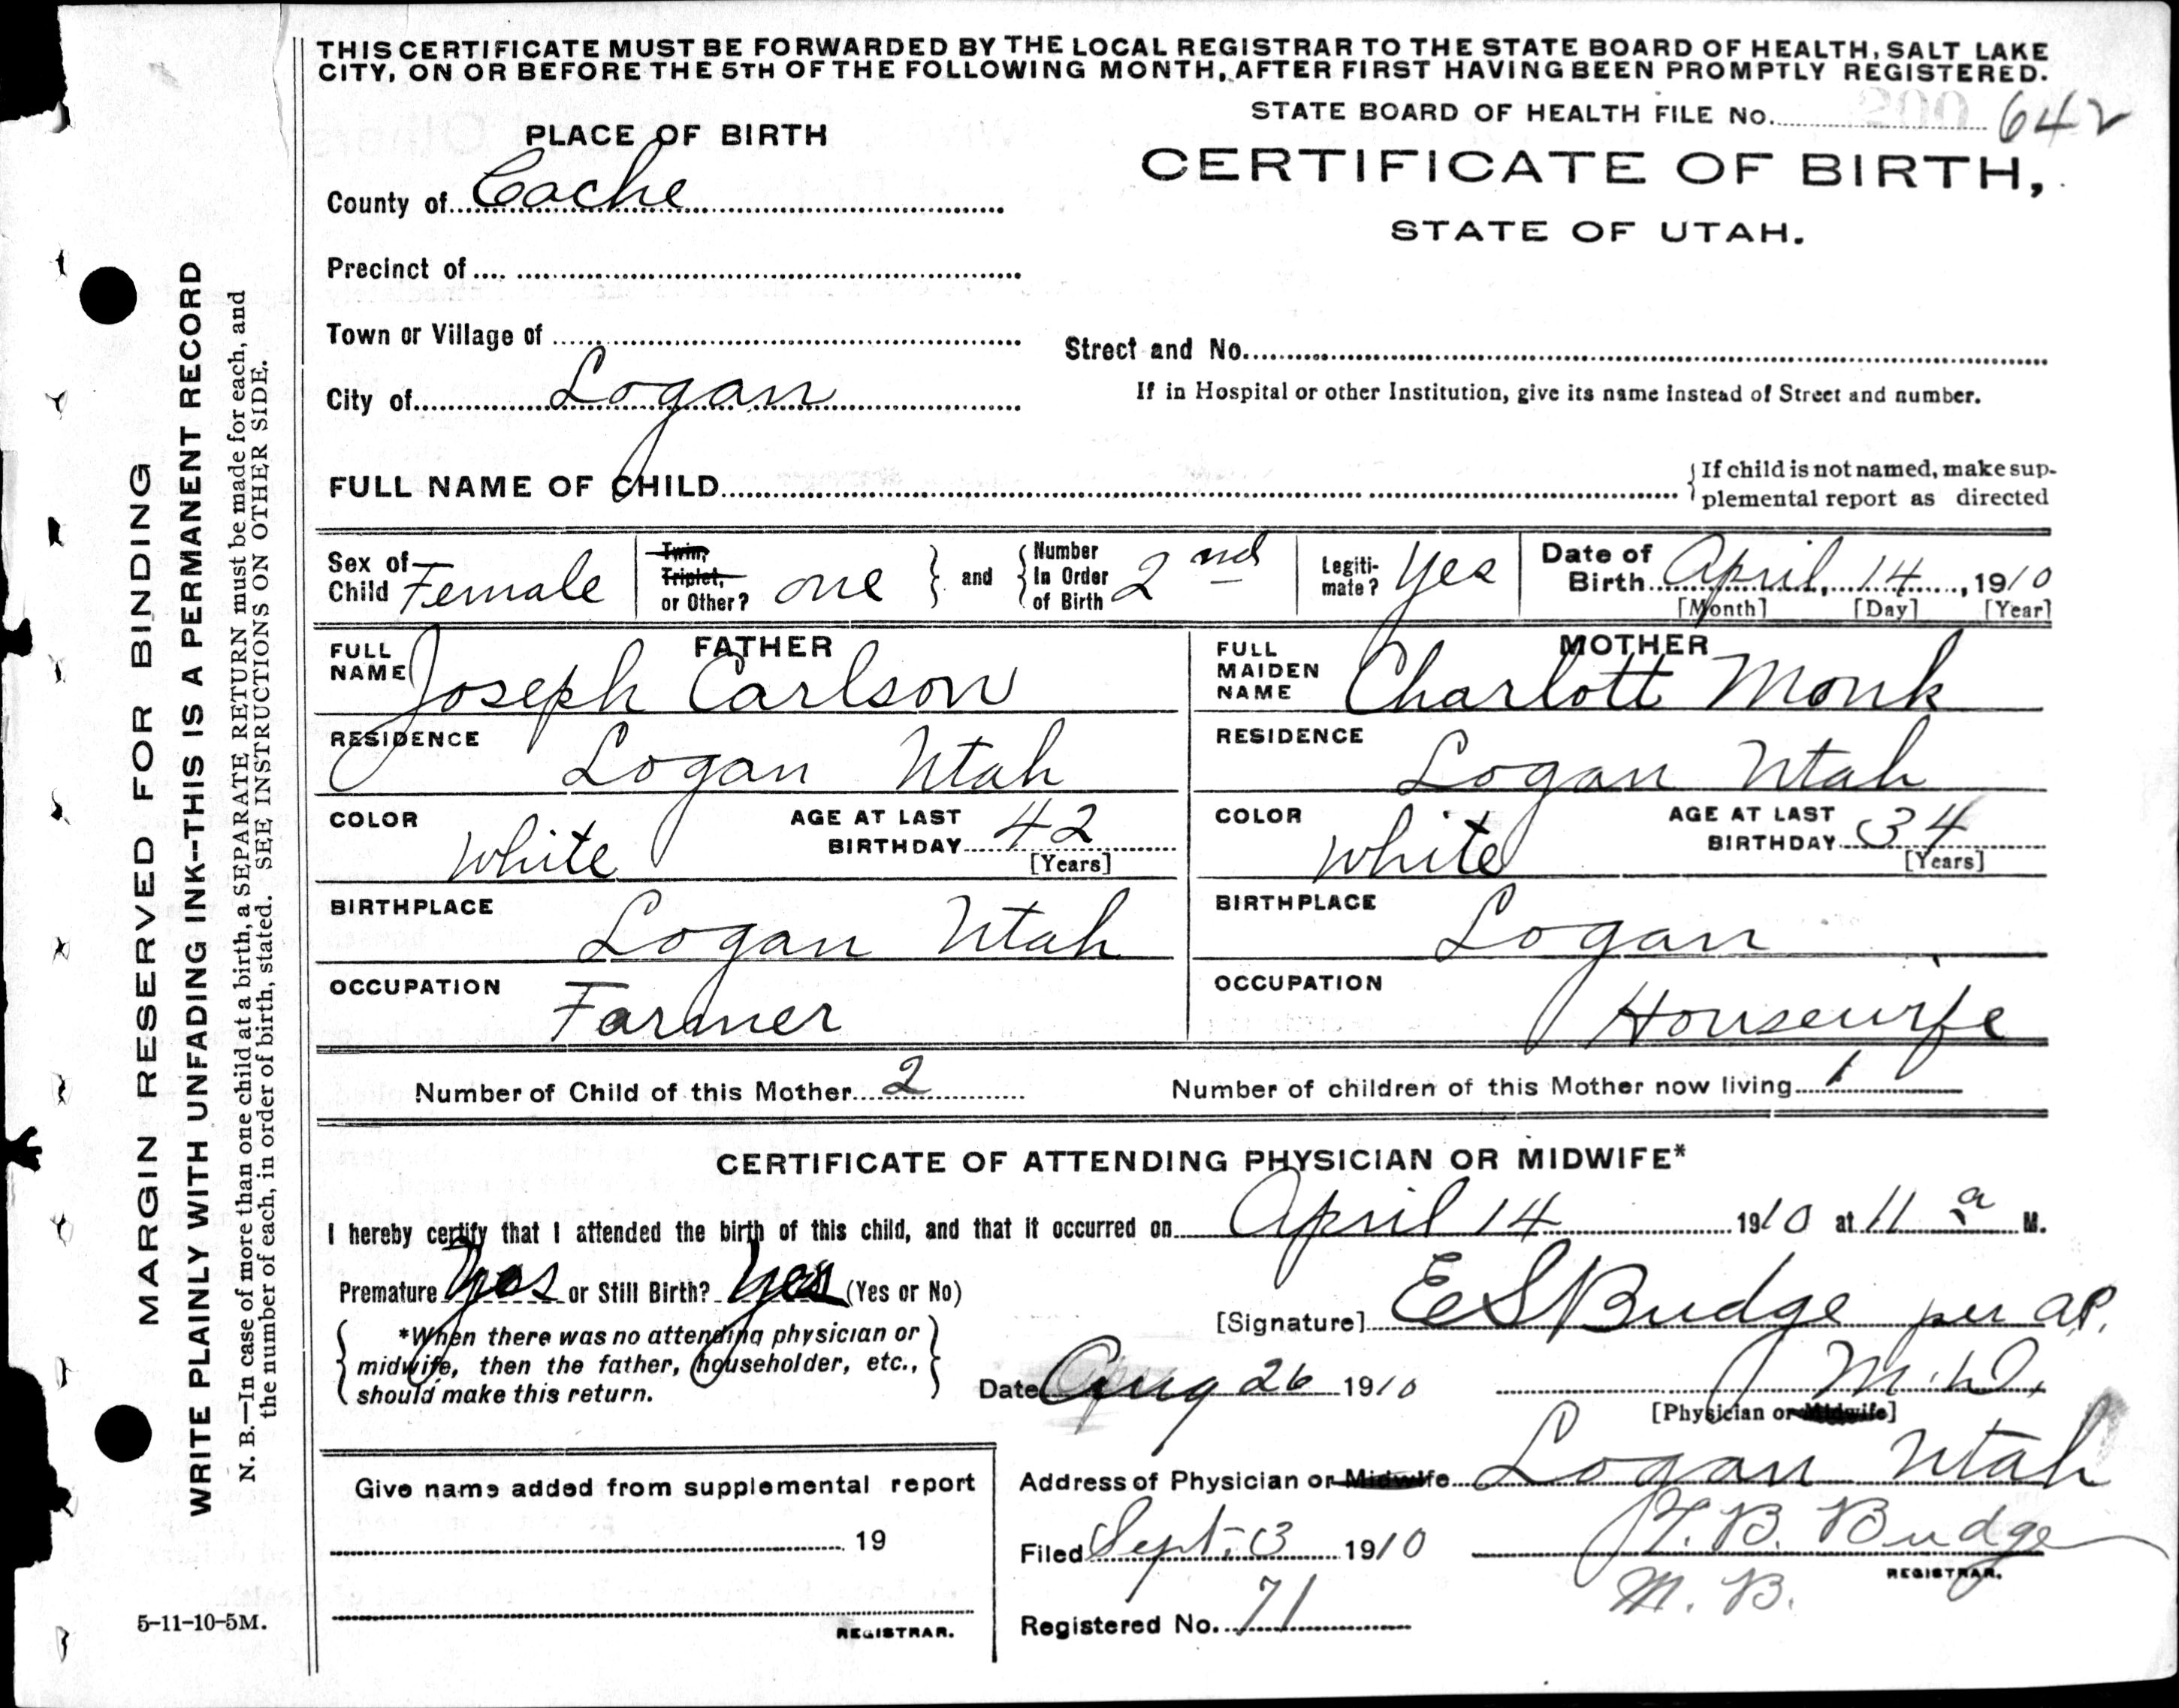 THIS CERTIFICATE MUST BE FORWARDED BY THE LOCAL REGISTRAR TO THE STATE BOARD OF HEALTH, SALT LAKE
CITY, ON OR BEFORE THE 5TH OF THE FOLLOWING MONTH, AFTER FIRST HAVING BEEN PROMPTLY REGISTERED.
STATE BOARD OF HEALTH FILE No. 642
PLACE OF BIRTH
CERTIFICATE OF BIRTH,
STATE OF UTAH.
County of Cache
Precinct of
Town or Village of
Street and No.
City of Logan
If in Hospital or other Institution, give its name instead of Street and number.
FULL NAME OF CHILD
If child is not named, make sup-
plemental report as directed
Sex of Child Female
Twin, Triplet, or Other? one and Number In Order of Birth 2nd
Legiti-mate? Yes
Date of Birth April 14, 1910
[Month] [Day] [Year]
FATHER
FULL NAME Joseph Carlson
RESIDENCE Logan Utah
COLOR White AGE AT LAST BIRTHDAY 42 [Years]
BIRTHPLACE Logan Utah
OCCUPATION Farmer
MOTHER
FULL MAIDEN NAME Charlott Monk
RESIDENCE Logan Utah
COLOR White AGE AT LAST BIRTHDAY 34 [Years]
BIRTHPLACE Logan
OCCUPATION Housewife
Number of Child of this Mother 2 Number of children of this Mother now living 1
CERTIFICATE OF ATTENDING PHYSICIAN OR MIDWIFE*
I hereby certify that I attended the birth of this child, and that it occurred on April 14 1910 at 11 a M.
Premature Yes or Still Birth? Yes (Yes or No)
*When there was no attending physician or
midwife, then the father, householder, etc.,
should make this return.
[Signature] E S Budge per AP.
Date Aug 26 1910 M.D.
[Physician or Midwife]
Address of Physician or Midwife Logan Utah
Give name added from supplemental report
19
REGISTRAR.
Filed Sept. 3 1910 T. B. Budge
REGISTRAR.
M. B.
Registered No. 71
5-11-10-5M.
MARGIN RESERVED FOR BINDING
WRITE PLAINLY WITH UNFADING INK--THIS IS A PERMANENT RECORD
N. B.—In case of more than one child at a birth, a SEPARATE RETURN must be made for each, and
the number of each, in order of birth, stated. SEE INSTRUCTIONS ON OTHER SIDE.